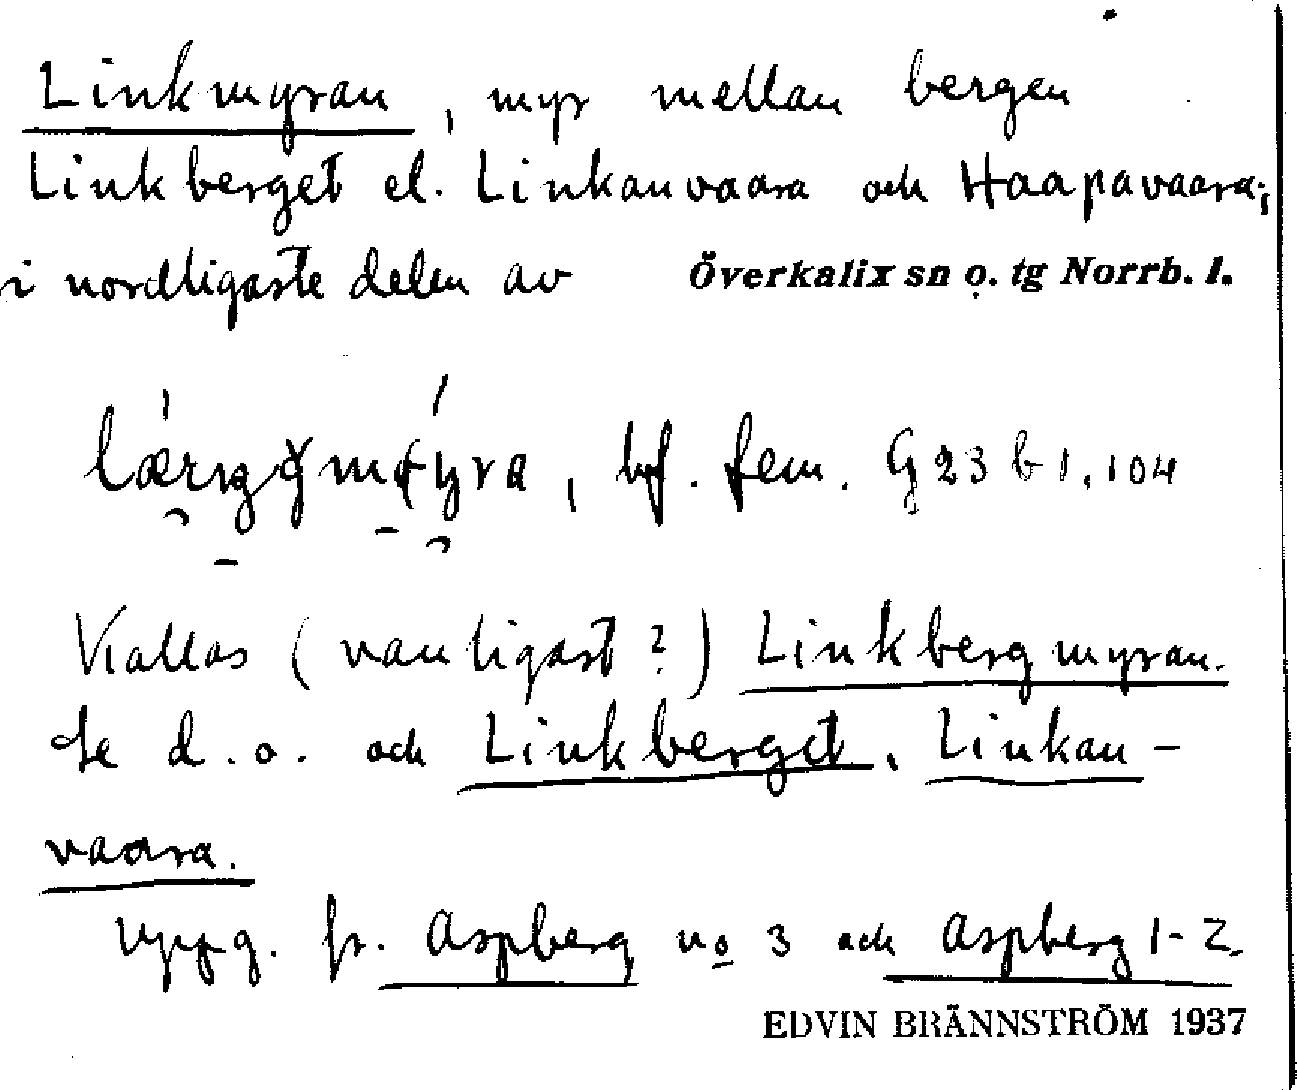 Linkmyran, myr mellan bergen
Linkberget el. Linkanvaara och Haapavaara;
i nordligaste delen av Överkalix sn o. tg Norrb. l.
, bf. fem. G 23 b 1, 104
Kallas (vanligast?) Linkbergmyran.
Se d. o. och Linkberget, Linkan-
vaara.
Uppg. fr. Aspberg no 3 och Aspberg 1-2.
EDVIN BRÄNNSTRÖM 1937